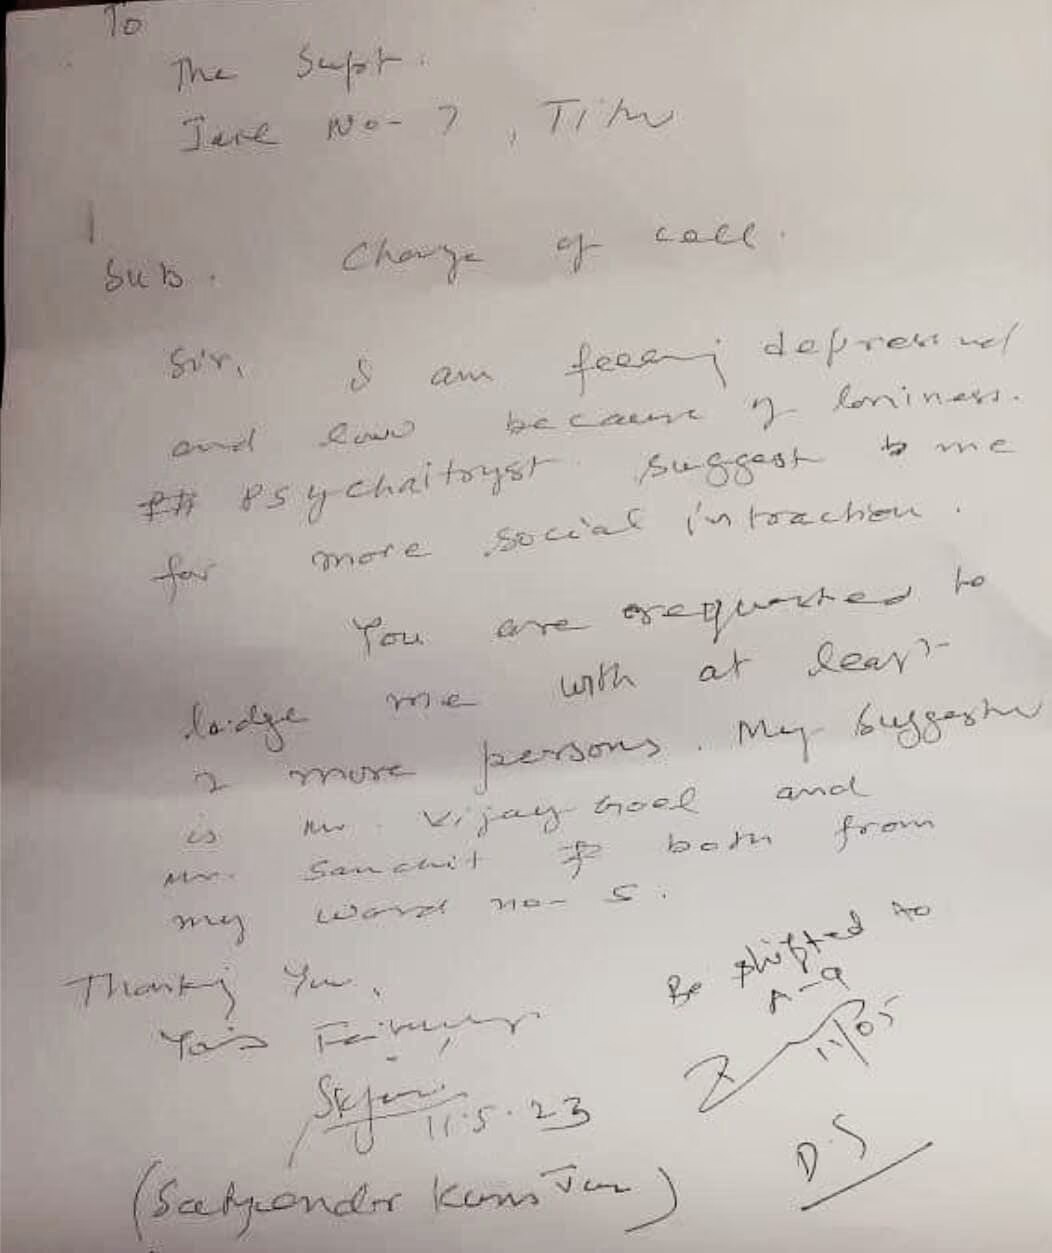 To
The Supt.
Jail No- 7, Tihar
Sub. Change of cell.
Sir, I am feeling depressed
and low because of loniness.
Psychaitryst suggest to me
for more social intraction.
You are requested to
lodge me with at least
2 more persons. My suggestion
is Mr. Vijay Goel and
Mr. Sanchit both from
my ward no- 5.
Thanking You,
Yours Faithfully
11.5.23
(Satyendar Kumar Jain)
Be shifted to
A-9
11/05
D.S